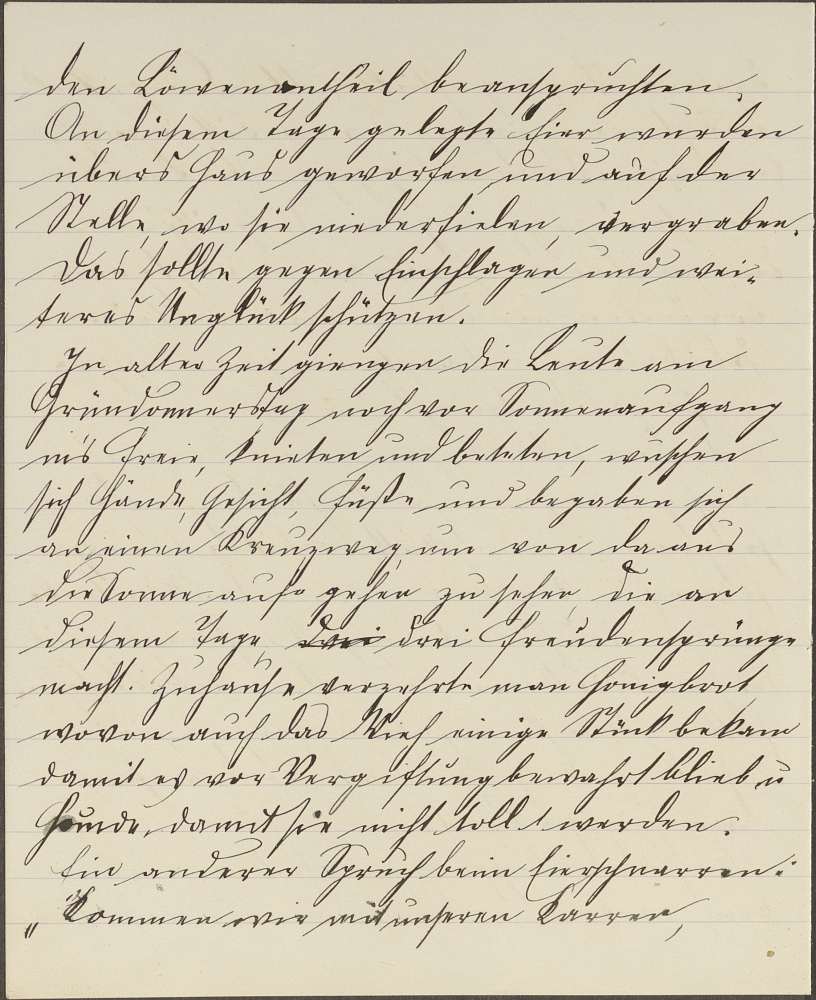 den Löwenantheil beanspruchten.
An diesem Tage gelegte Eier wurden
übers Haus geworfen und auf der
Stelle, wo sie niederfielen, vergraben.
Das sollte gegen Einschlagen und wei-
teres Unglück schützen.
In alter Zeit giengen die Leute am
Gründonnerstag noch vor Sonnenaufgang
ins Freie, knieten und beteten, wuschen
sich Hände, Gesicht, Füße und begaben sich
an einen Kreuzweg um von da aus
die Sonne aufgehen zu sehen, die an
diesem Tage drei drei Freudensprünge
macht. Zuhause verzehrte man Honigbrot
wovon auch das Vieh einige Stück bekam
damit es vor Vergiftung bewahrt blieb u
Hunde, damit sie nicht toll werden.
Ein anderer Spruch beim Eierschnarren:
„Kommen wir mit unseren Karren,